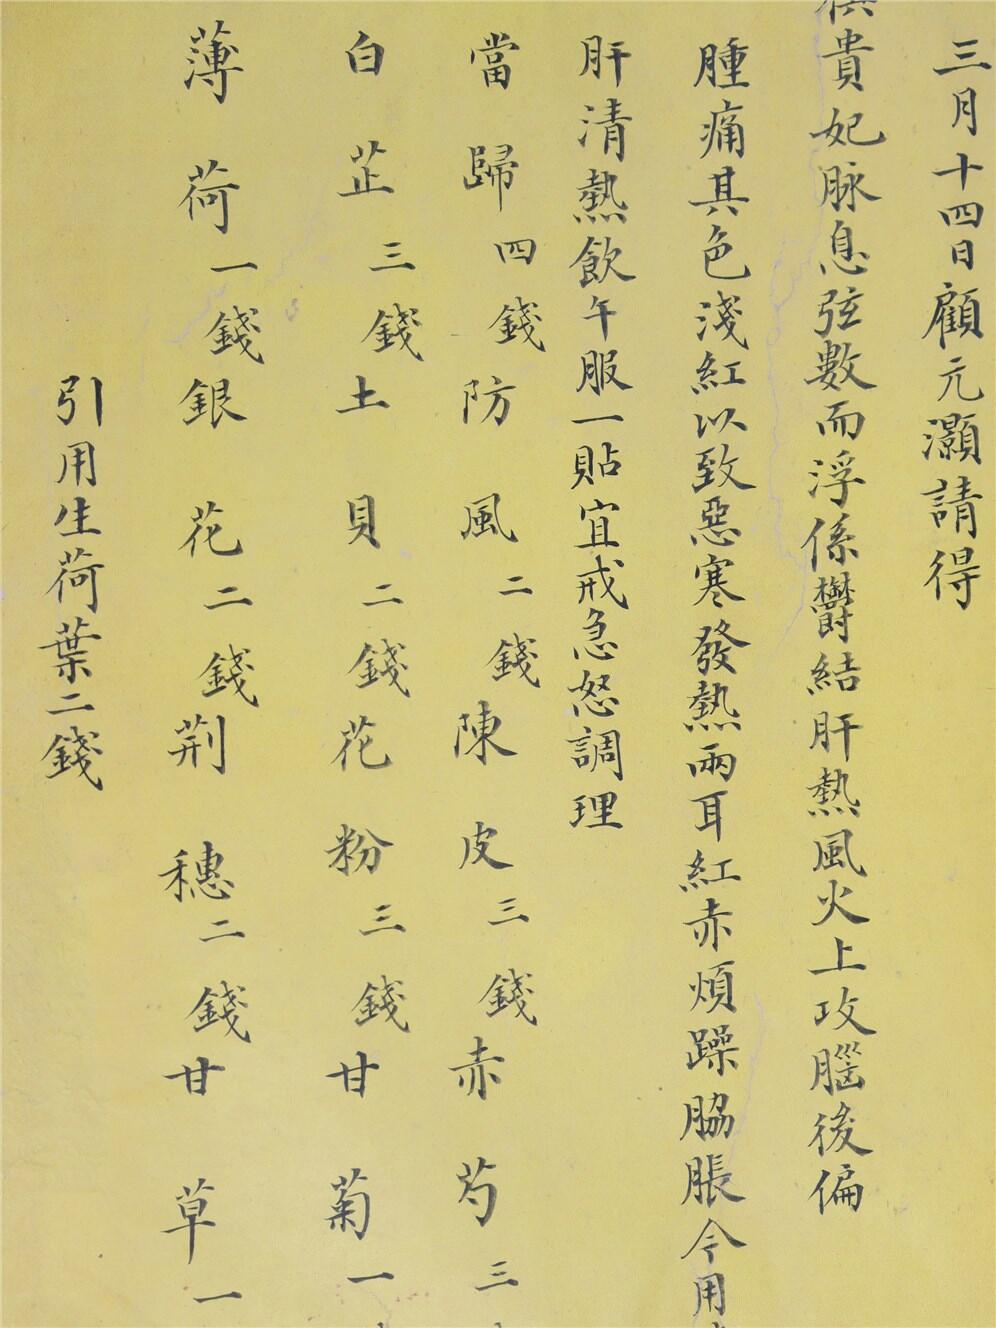 三月十四日顧元灝請得
貴妃脉息弦數而浮係鬱結肝熱風火上攻腦後偏
腫痛其色淺紅以致惡寒發熱兩耳紅赤煩躁脇脹今用
肝清熱飲午服一貼宜戒急怒調理
當歸四錢防風二錢陳皮三錢赤芍三
白芷三錢土貝二錢花粉三錢甘菊一
薄荷一錢銀花二錢荆穗二錢甘草一
引用生荷葉二錢